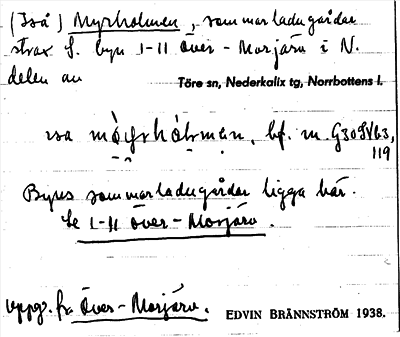 (Två) Myrholmen, sommarladugårdar
strax S. byn 1-11 Över-Morjärv i N.
delen av Töre sn, Nederkalix tg, Norrbottens l.
bf. m. G309V63,
119
Byns sommarladugårdar ligga här.
Se 1-11 Över-Morjärv.
uppg. fr. Över-Morjärv. EDVIN BRÄNNSTRÖM 1938.